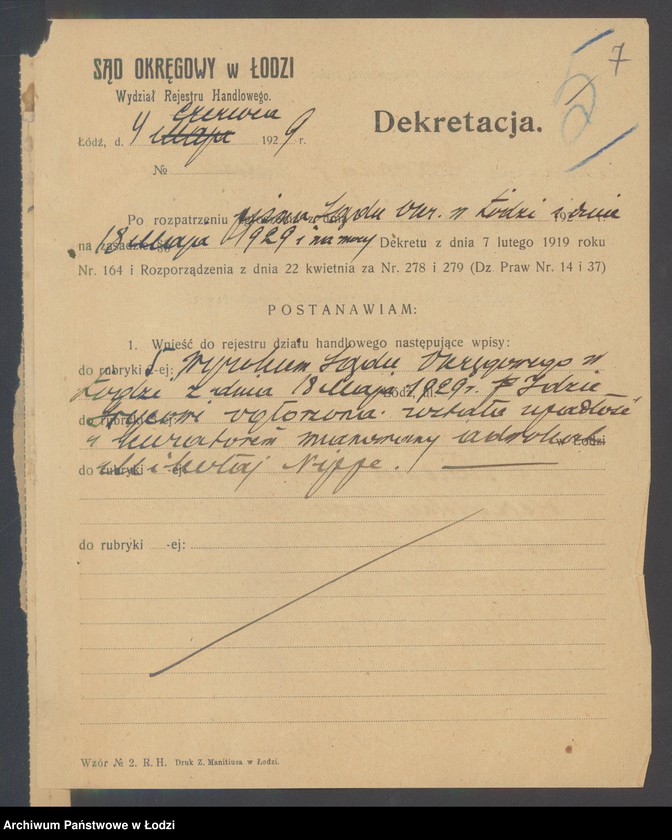 7
5
SĄD OKRĘGOWY w ŁODZI
Wydział Rejestru Handlowego.
czerwca
Łódź, d. 4 maja 1929 r.
Dekretacja.
№
Po rozpatrzeniu pisma Sądu Okr. w Łodzi z dnia
na zasadzie 18 maja 1929 i na mocy Dekretu z dnia 7 lutego 1919 roku
Nr. 164 i Rozporządzenia z dnia 22 kwietnia za Nr. 278 i 279 (Dz Praw Nr. 14 i 37)
POSTANAWIAM:
1. Wnieść do rejestru działu handlowego następujące wpisy:
do rubryki 5-ej: Wyrokiem Sądu Okręgowego w
Łodzi z dnia 18 maja 1929 r.
do rubryki ogłoszona została upadłość
kuratorem mianowany adwokat w Łodzi
do rubryki -ej Mikołaj Nippe.
do rubryki -ej:
Wzór № 2. R. H. Druk Z. Manitiusa w Łodzi.
Archiwum Państwowe w Łodzi